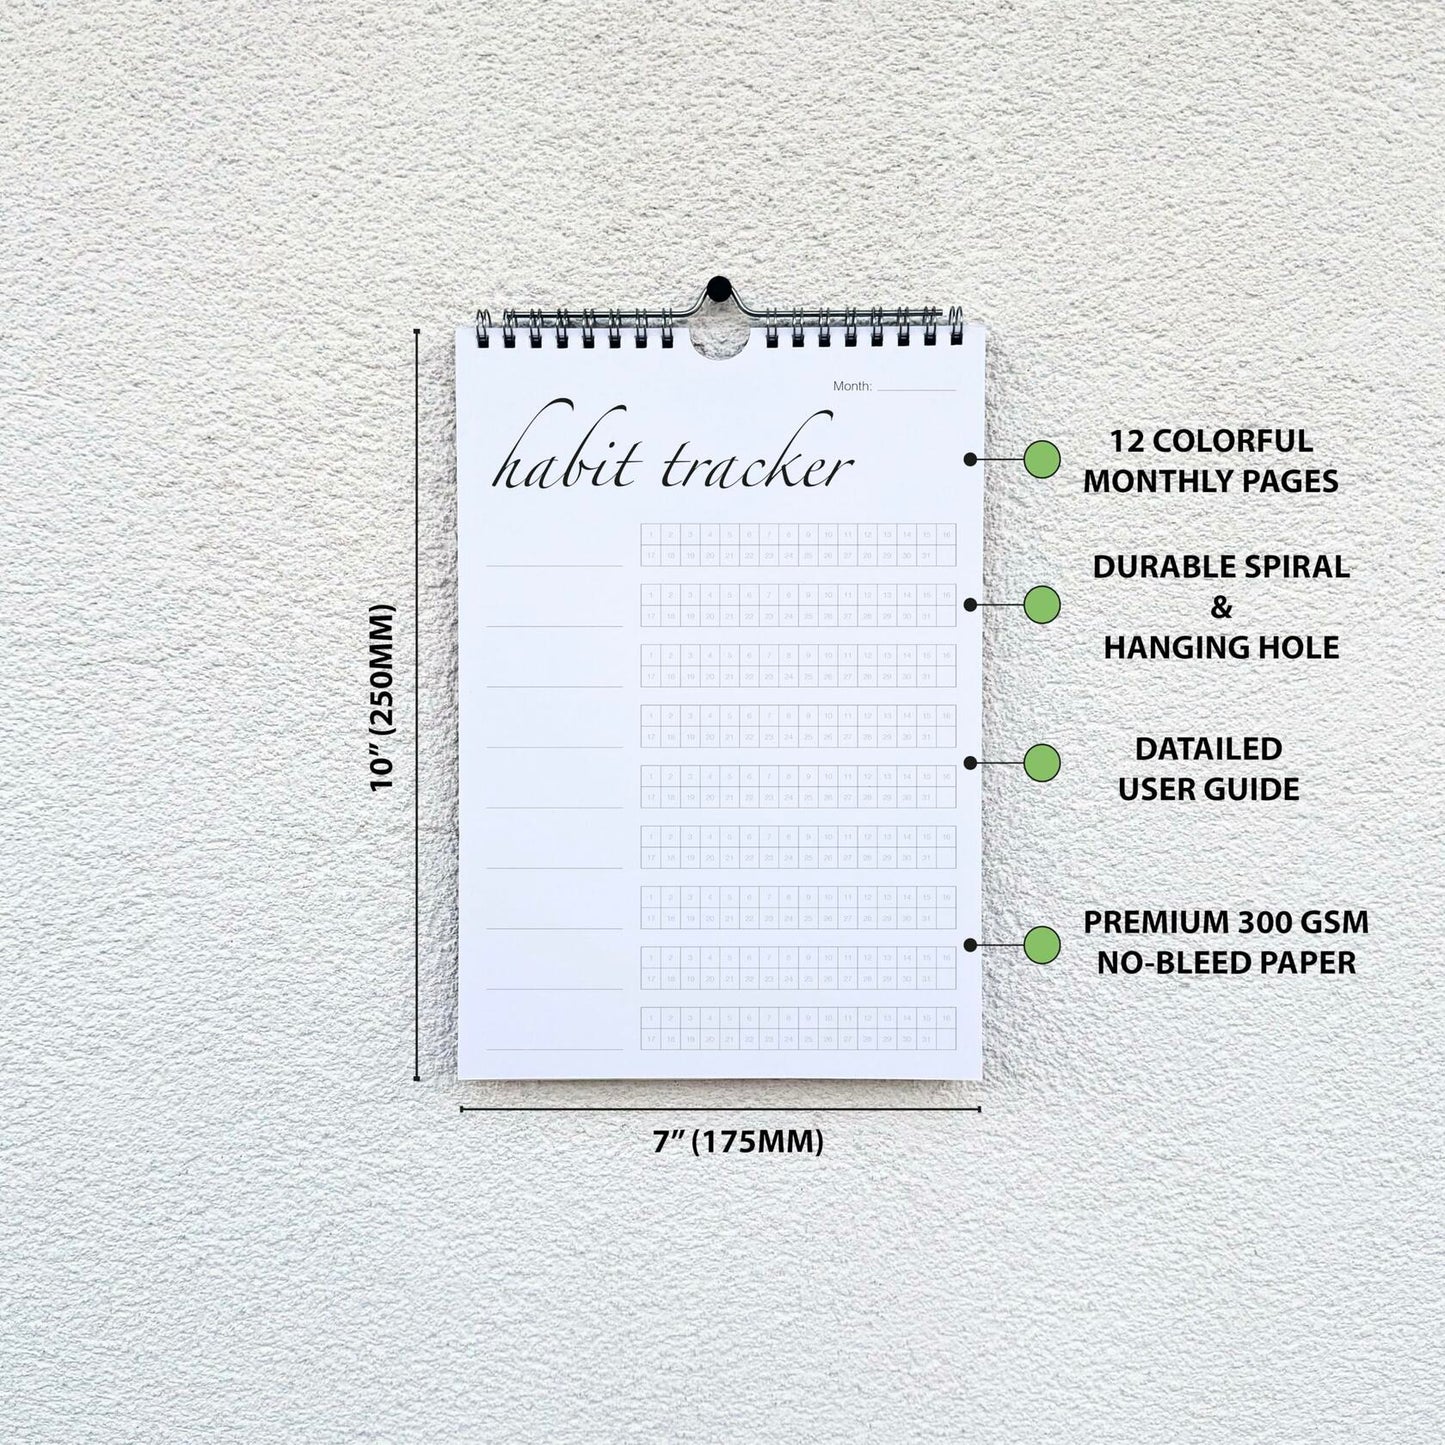 Month:
habit tracker
1 2 3 4 5 6 7 8 9 10 11 12 13 14 15 16
17 18 19 20 21 22 23 24 25 26 27 28 29 30 31
1 2 3 4 5 6 7 8 9 10 11 12 13 14 15 16
17 18 19 20 21 22 23 24 25 26 27 28 29 30 31
1 2 3 4 5 6 7 8 9 10 11 12 13 14 15 16
17 18 19 20 21 22 23 24 25 26 27 28 29 30 31
1 2 3 4 5 6 7 8 9 10 11 12 13 14 15 16
17 18 19 20 21 22 23 24 25 26 27 28 29 30 31
1 2 3 4 5 6 7 8 9 10 11 12 13 14 15 16
17 18 19 20 21 22 23 24 25 26 27 28 29 30 31
1 2 3 4 5 6 7 8 9 10 11 12 13 14 15 16
17 18 19 20 21 22 23 24 25 26 27 28 29 30 31
1 2 3 4 5 6 7 8 9 10 11 12 13 14 15 16
17 18 19 20 21 22 23 24 25 26 27 28 29 30 31
1 2 3 4 5 6 7 8 9 10 11 12 13 14 15 16
17 18 19 20 21 22 23 24 25 26 27 28 29 30 31
1 2 3 4 5 6 7 8 9 10 11 12 13 14 15 16
17 18 19 20 21 22 23 24 25 26 27 28 29 30 31
10” (250MM)
7” (175MM)
12 COLORFUL
MONTHLY PAGES
DURABLE SPIRAL
&
HANGING HOLE
DATAILED
USER GUIDE
PREMIUM 300 GSM
NO-BLEED PAPER